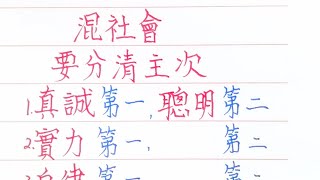 混社會
要分清主次
1.真誠第一,聰明第二
2.實力第一,第二
3.自律第一,第二